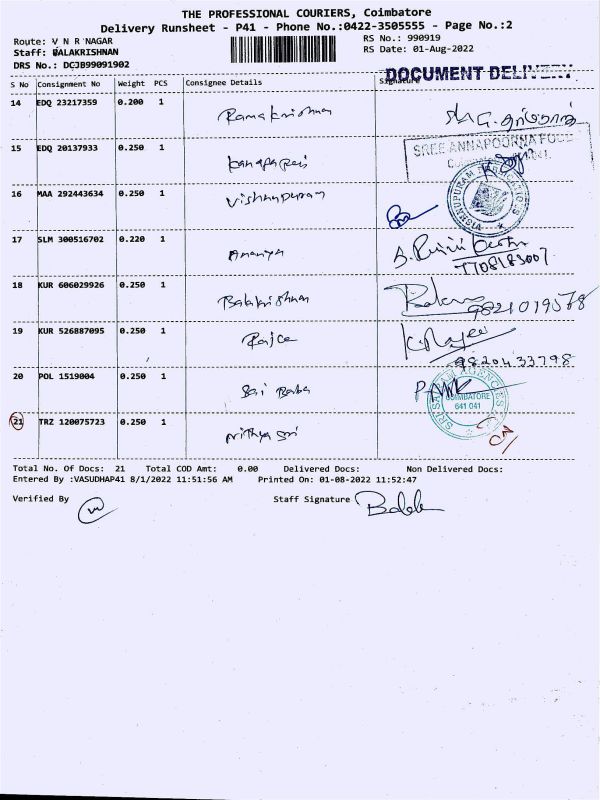 THE PROFESSIONAL COURIERS, Coimbatore
Delivery Runsheet - P41 - Phone No.:0422-3505555 - Page No.:2
Route: V N R NAGAR
RS No.: 990919
Staff: BALAKRISHNAN
RS Date: 01-Aug-2022
DRS No.: DCJB99091902
DOCUMENT DELIVERY
S No Consignment No Weight PCS Consignee Details Signature
14 EDQ 23217359 0.200 1 Ramakrishnan
15 EDQ 20137933 0.250 1
SREE ANNAPOORNA FOOD
16 MAA 292443634 0.250 1 Vishnupuram
VISHNUPURAM
17 SLM 300516702 0.220 1 Ananya
7708183007
18 KUR 606029926 0.250 1 Balakrishnan
9821019578
19 KUR 526887095 0.250 1
9820433798
20 POL 1519004 0.250 1 Sai Baba
AGENCIES
COIMBATORE
641 041
21 TRZ 120075723 0.250 1 Nithya Sri
Total No. Of Docs: 21 Total COD Amt: 0.00 Delivered Docs: Non Delivered Docs:
Entered By :VASUDHAP41 8/1/2022 11:51:56 AM Printed On: 01-08-2022 11:52:47
Verified By Staff Signature